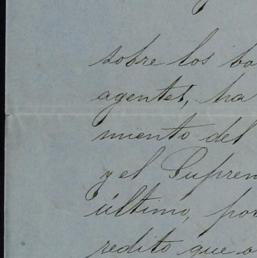 sobre los ba
agentes, ha
miento del
y el Suprem
último, por
redito que o